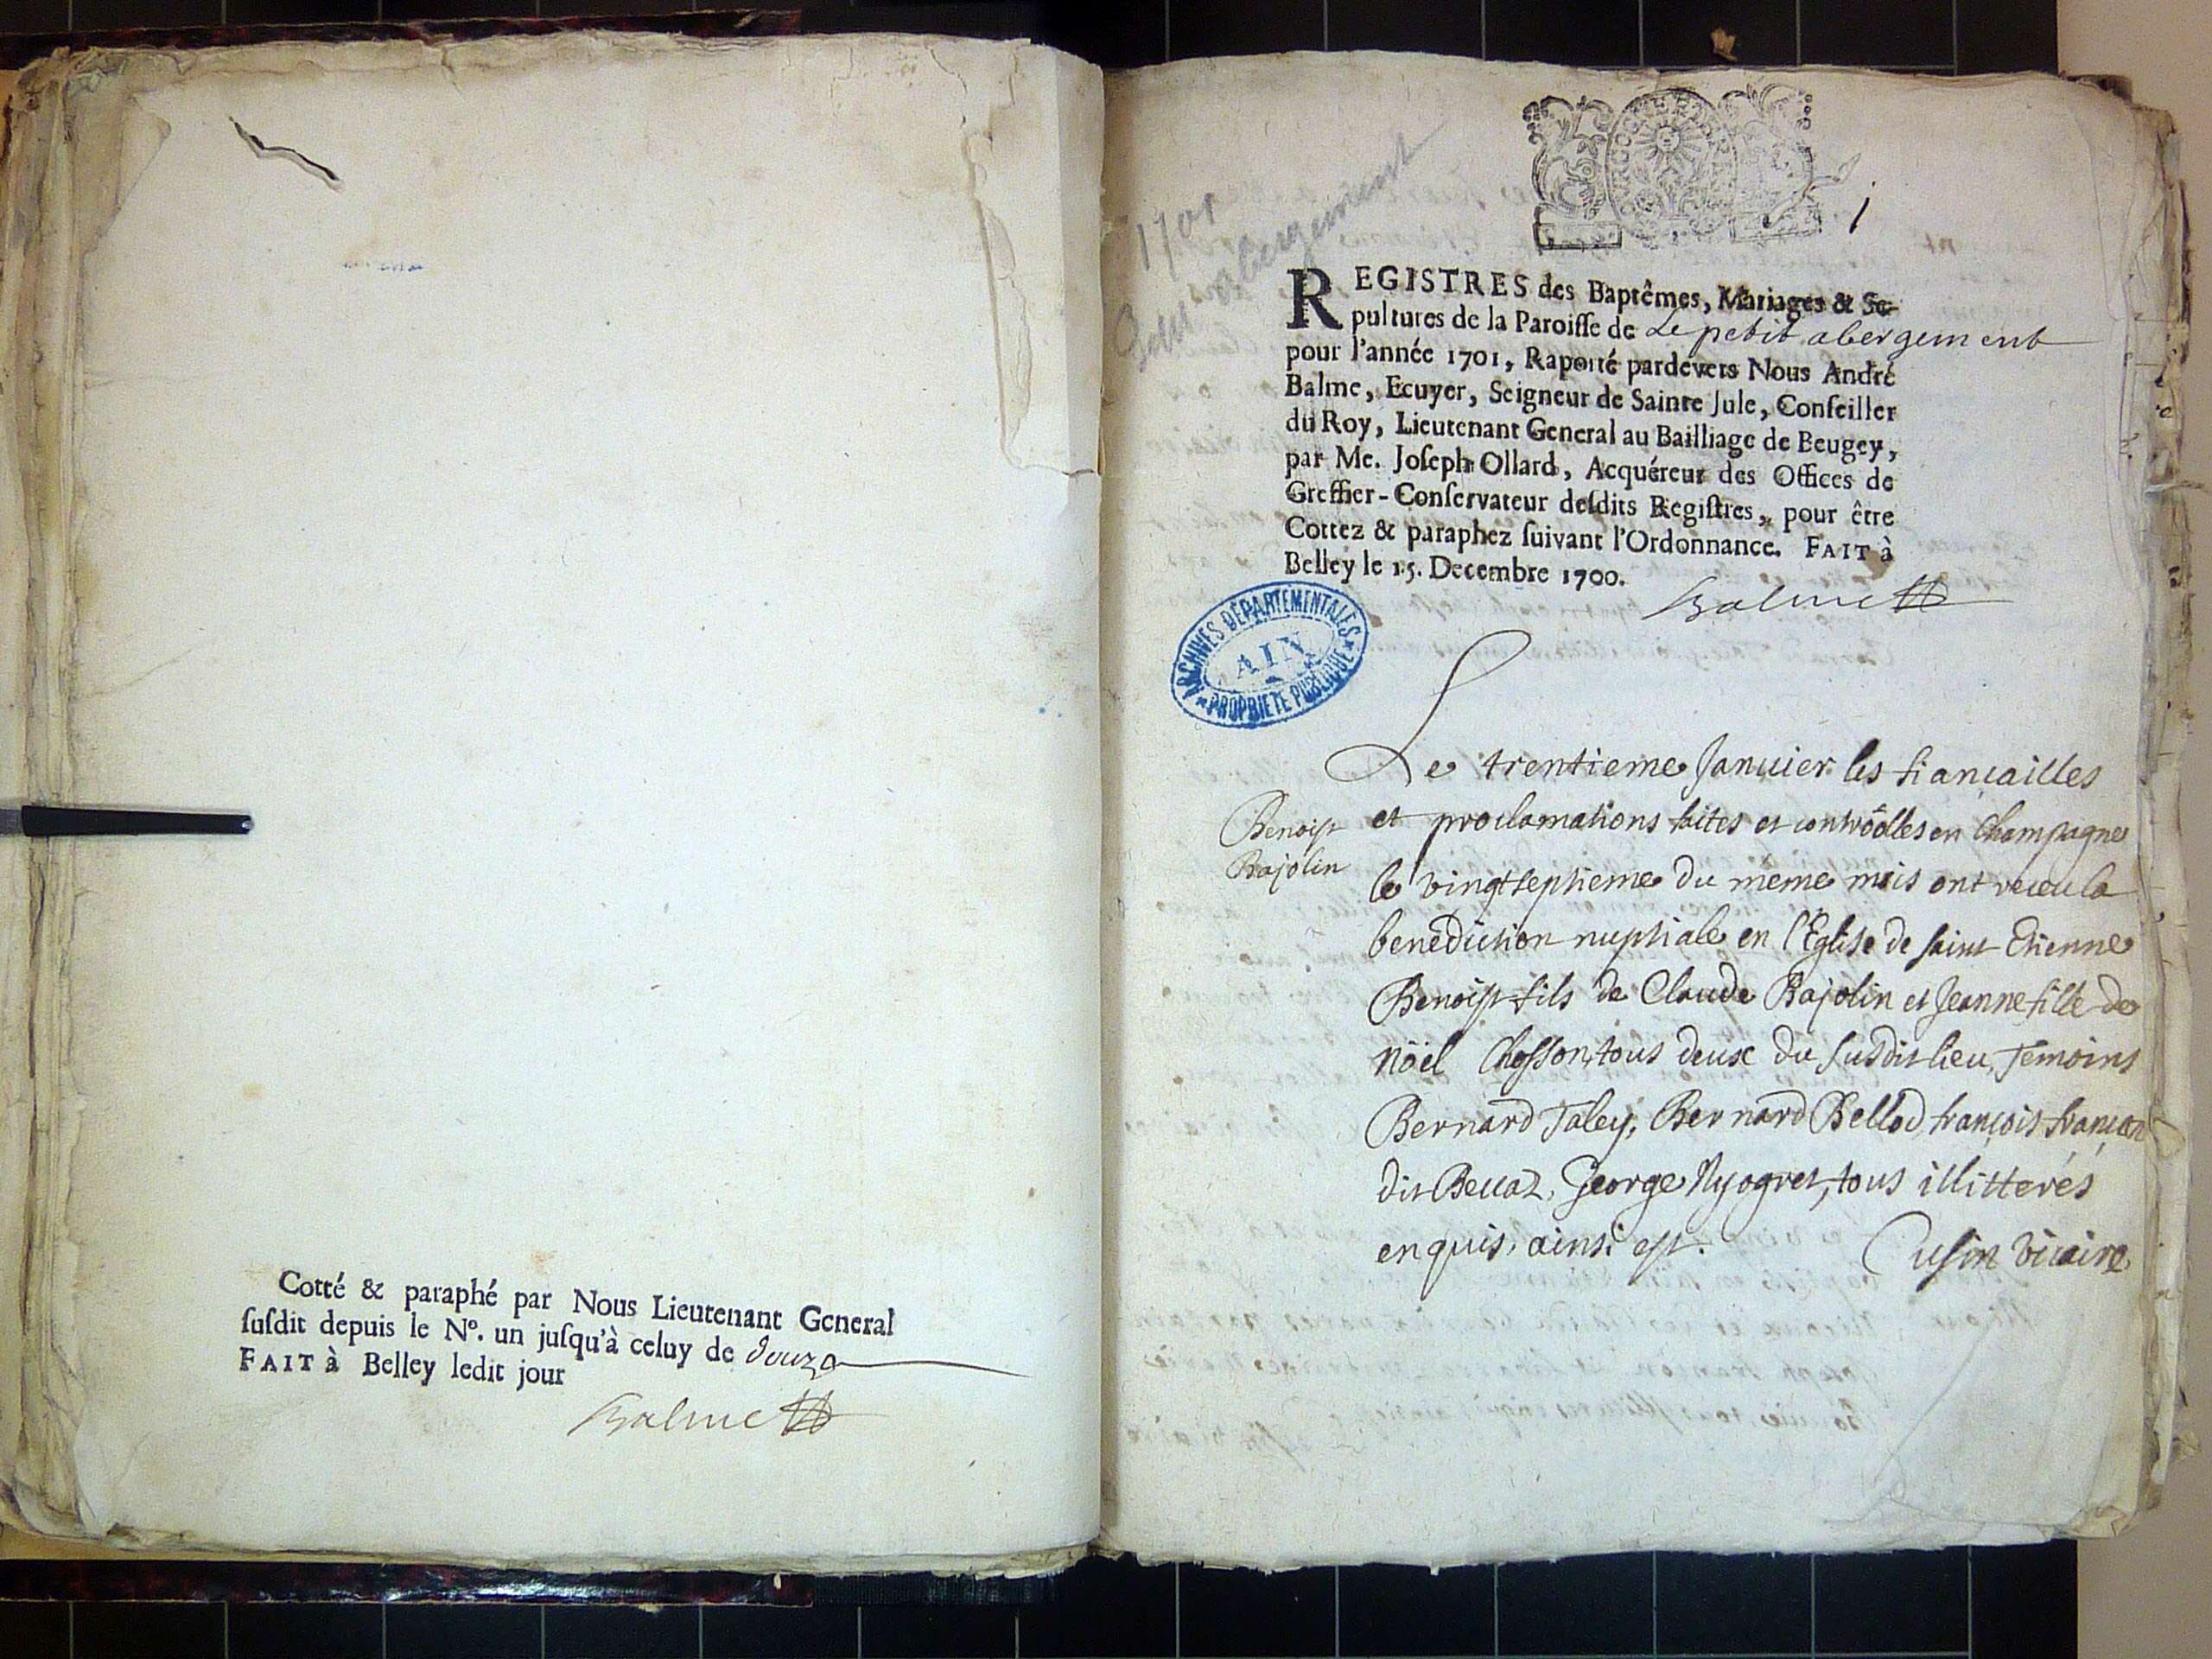 Cotté & paraphé par Nous Lieutenant General
ſuſdit depuis le Nº. un juſqu'à celuy de douze
FAIT à Belley ledit jour
Balme
1701
abergement
1
REGISTRES des Baptêmes, Mariages & Se-
pultures de la Paroiſſe de Le petit abergement
pour l'année 1701, Raporté pardevers Nous André
Balme, Ecuyer, Seigneur de Sainte Jule, Conſeiller
du Roy, Lieutenant General au Bailliage de Beugey,
par Me. Joſeph Ollard, Acquéreur des Offices de
Greffier-Conſervateur deſdits Regiſtres, pour être
Cottez & paraphez ſuivant l'Ordonnance. FAIT à
Belley le 15. Decembre 1700.
Balme
ARCHIVES DÉPARTEMENTALES
AIN
PROPRIETE PUBLIQUE
Le trentieme Januier les fiançailles
Benoist
Bajolin
et proclamations faites et controollés en Champagne
le vingtseptieme du meme mois ont receu la
benediction nuptiale en l'Eglise de saint Etienne
Benoist fils de Claude Bajolin et Jeanne fille de
Nöel Chosson, tous deux du susdit lieu, Temoins
Bernard Taley, Bernard Bellod, françois françon
dit Beccaz, George Nyogret, tous illitterés
enquis, ainsi est. Cusin vicaire